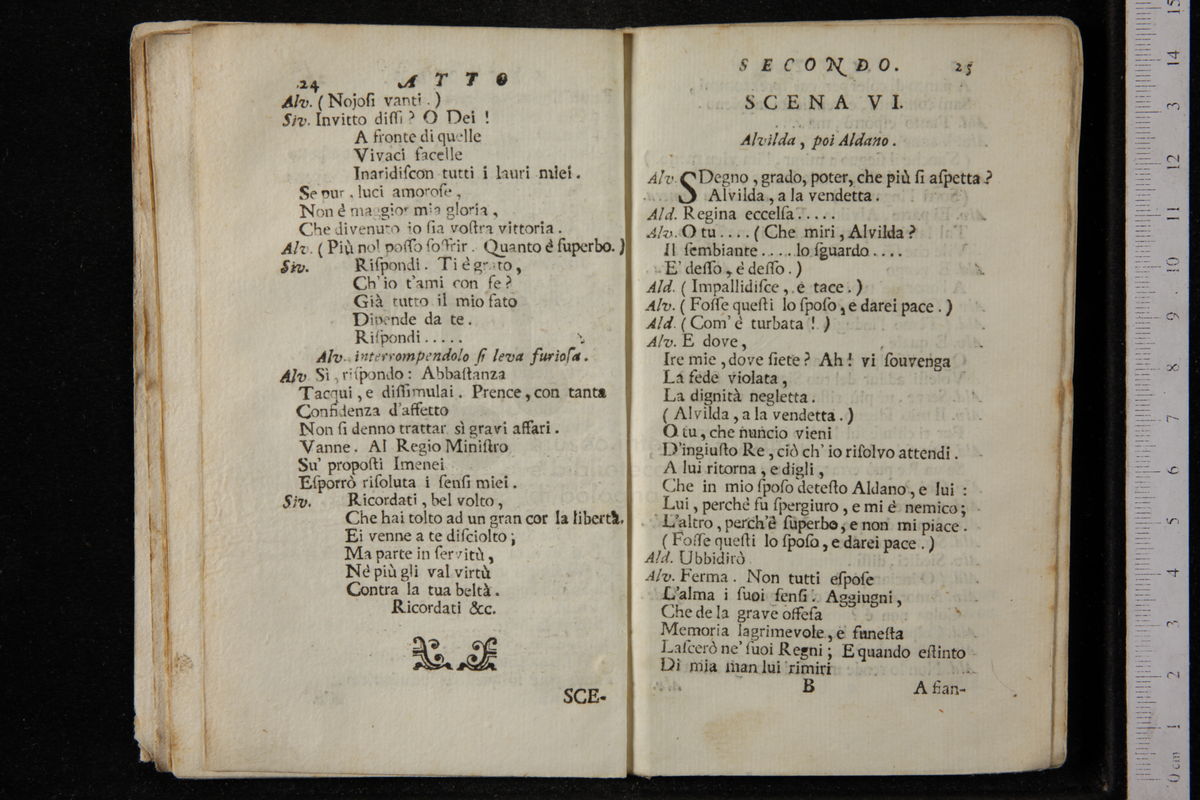 24 ATTO
Alv. ( Nojoſi vanti . )
Siv. Invitto diſſi ? O Dei !
A fronte di quelle
Vivaci facelle
Inaridiſcon tutti i lauri miei .
Se pur , luci amoroſe ,
Non è maggior mia gloria ,
Che divenuto io ſia voſtra vittoria .
Alv. ( Più nol poſſo ſoffrir . Quanto è ſuperbo . )
Siv. Riſpondi . Ti è grato ,
Ch' io t'ami con fe ?
Già tutto il mio fato
Dipende da te .
Riſpondi . . . . .
Alv. interrompendolo ſi leva furioſa .
Alv Sì , riſpondo : Abbaſtanza
Tacqui , e diſſimulai . Prence , con tanta
Confidenza d'affetto
Non ſi denno trattar sì gravi affari .
Vanne . Al Regio Miniſtro
Su' propoſti Imenei
Eſporrò riſoluta i ſenſi miei .
Siv. Ricordati , bel volto ,
Che hai tolto ad un gran cor la libertà .
Ei venne a te diſciolto ;
Ma parte in ſervitù ,
Nè più gli val virtù
Contra la tua beltà .
Ricordati &c.
SCE-
SECONDO. 25
SCENA VI.
Alvilda , poi Aldano .
Alv. SDegno , grado , poter , che più ſi aſpetta ?
Alvilda , a la vendetta .
Ald. Regina eccelſa . . . . .
Alv. O tu . . . . ( Che miri , Alvilda ?
Il ſembiante . . . . . lo ſguardo . . . .
E' deſſo , è deſſo . )
Ald. ( Impallidiſce , e tace . )
Alv. ( Foſſe queſti lo ſpoſo , e darei pace . )
Ald. ( Com' è turbata ! )
Alv. E dove ,
Ire mie , dove ſiete ? Ah ! vi ſouvenga
La fede violata ,
La dignità negletta .
( Alvilda , a la vendetta . )
O tu , che nuncio vieni
D'ingiuſto Re , ciò ch' io riſolvo attendi .
A lui ritorna , e digli ,
Che in mio ſpoſo deteſto Aldano , e lui :
Lui , perchè fu ſpergiuro , e mi è nemico ;
L'altro , perch'è ſuperbo , e non mi piace .
( Foſſe queſti lo ſpoſo , e darei pace . )
Ald. Ubbidirò
Alv. Ferma . Non tutti eſpoſe
L'alma i ſuoi ſenſi . Aggiugni ,
Che de la grave offeſa
Memoria lagrimevole , e funeſta
Laſcerò ne' ſuoi Regni ; E quando eſtinto
Di mia man lui rimiri
B A fian-
15
14
13
12
11
10
9
8
7
6
5
4
3
2
1
0 cm